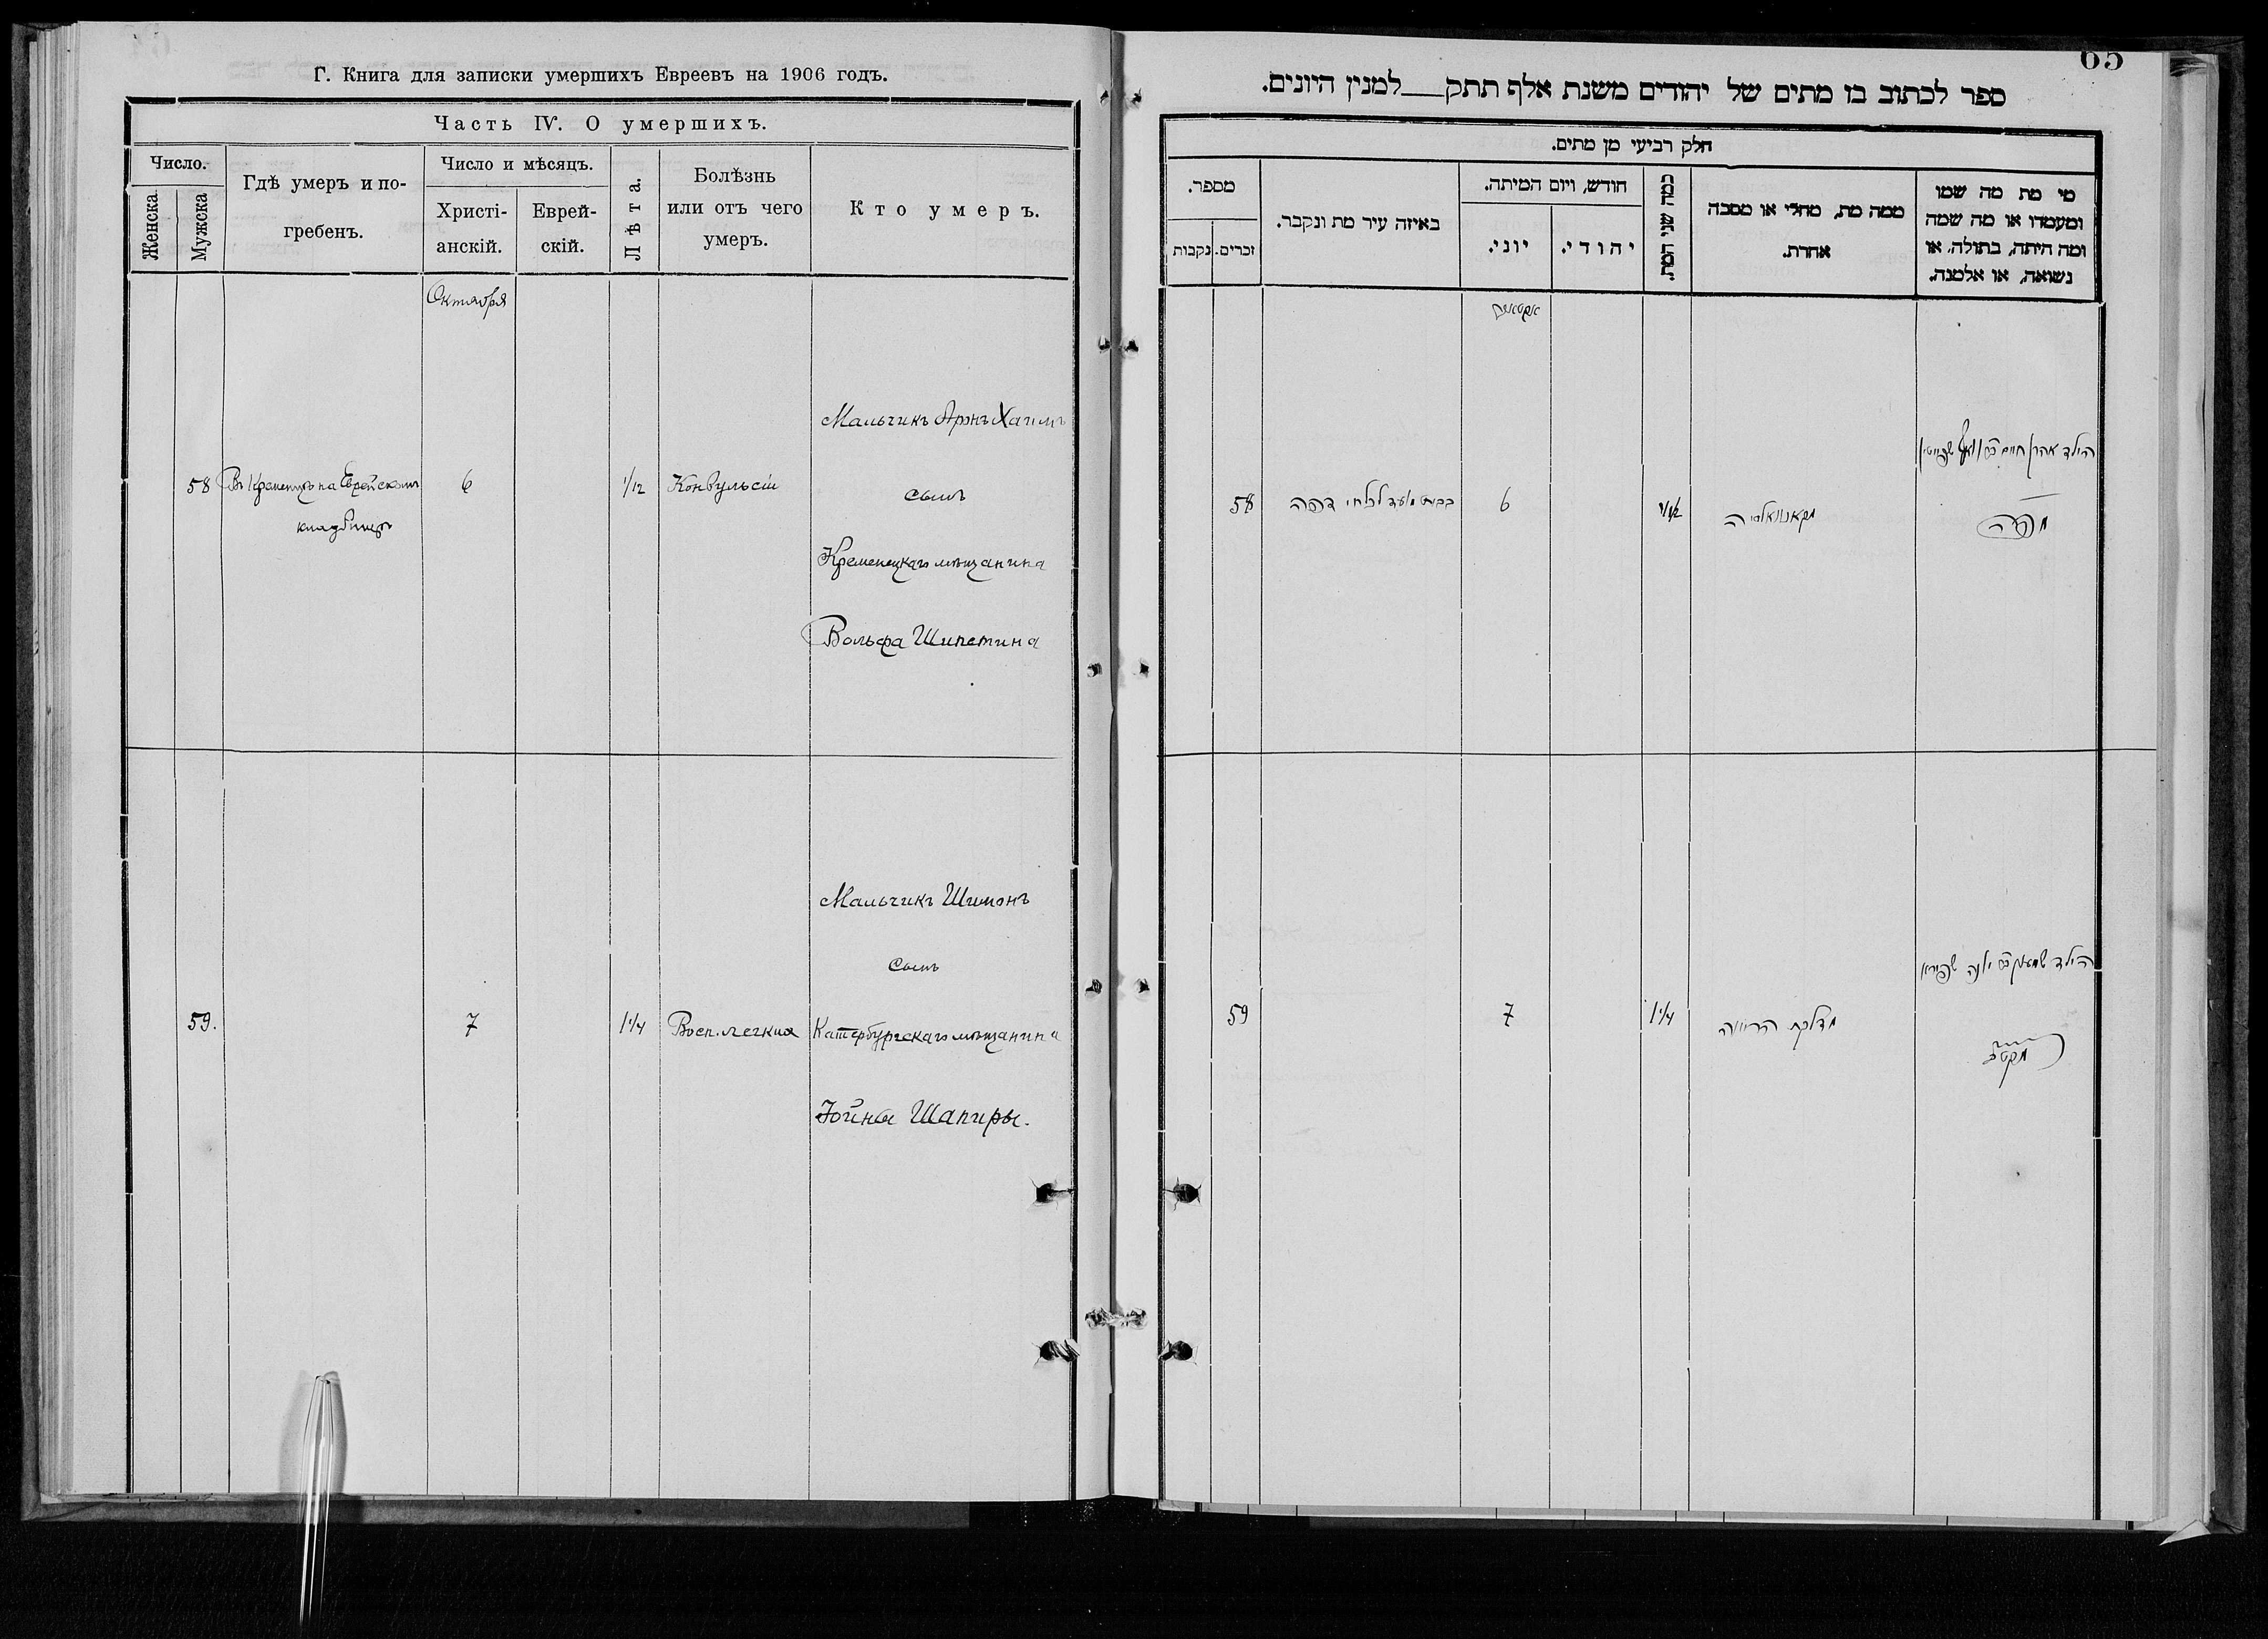 Г. Книга для записки умершихъ Евреевъ на 1906 годъ.
Часть IV. О умершихъ.
Число.
Женска
Мужска
Гдѣ умеръ и по-
гребенъ.
Число и мѣсяцъ.
Христі-
анскій.
Еврей-
скій.
Лѣта.
Болѣзнь
или отъ чего
умеръ.
Кто умеръ.
Октября
58
Въ Кременцѣ на Еврейскомъ
кладбищѣ
6
1/12
Конвульсіи
Мальчикъ Аронъ Хаимъ
сынъ
Кременецкаго мѣщанина
Вольфа Шипетина
59.
7
1 1/4
Восп. легкихъ
Мальчикъ Шимонъ
сынъ
Катербургскаго мѣщанина
Іойны Шапиры.
65
ספר לכתוב בו מתים של יהודים משנת אלף תתק___למנין היונים.
חלק רביעי מן מתים.
מי מת מה שמו
ומעמדו או מה שמה
ומה היתה, בתולה, או
נשואה, או אלמנה.
ממה מת, מחלי או מסבה
אחרת.
כמה שני המת.
חודש, ויום המיתה.
יהודי.
יוני.
באיזה עיר מת ונקבר.
מספר.
זכרים.
נקבות
הילד אהרן חיים
1/12
6
58
הילד
יונה שפירא
מדלקת הריאה
1 1/4
7
59